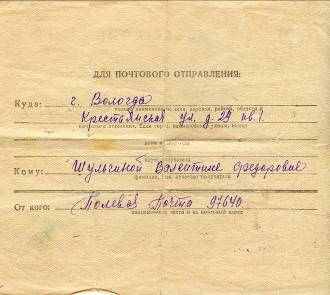 ДЛЯ ПОЧТОВОГО ОТПРАВЛЕНИЯ:
Куда: г. Вологда
Крестьянская ул. д-29 кв. 1.
Кому: Шульгиной Валентине Федоровне
От кого: Полевая Почта 97640